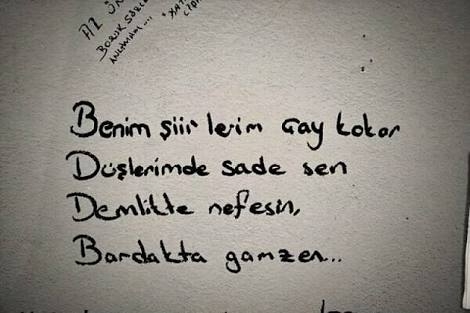 Benim şiirlerim Çay kokar
Düşlerimde sade sen
Demlikte nefesin,
Bardakta gamzen...